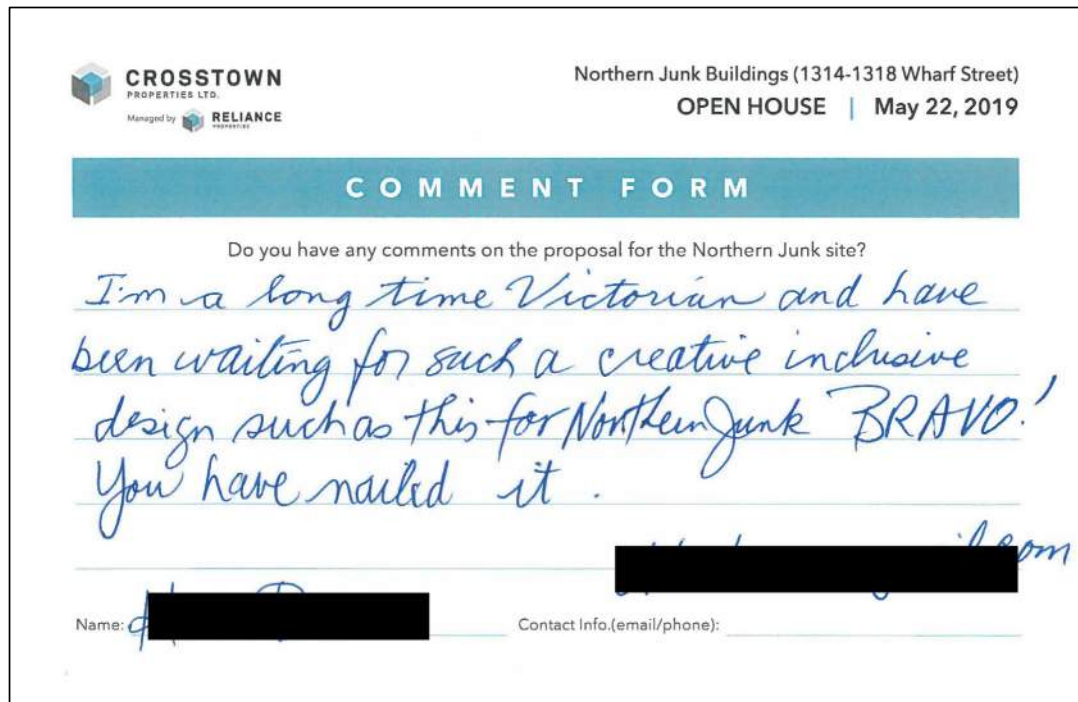 CROSSTOWN
PROPERTIES LTD.
Managed by RELIANCE
PROPERTIES
Northern Junk Buildings (1314-1318 Wharf Street)
OPEN HOUSE | May 22, 2019
COMMENT FORM
Do you have any comments on the proposal for the Northern Junk site?
I'm a long time Victorian and have
been waiting for such a creative inclusive
design such as this for Northern Junk BRAVO!
You have nailed it.
Name:
Contact Info.(email/phone):